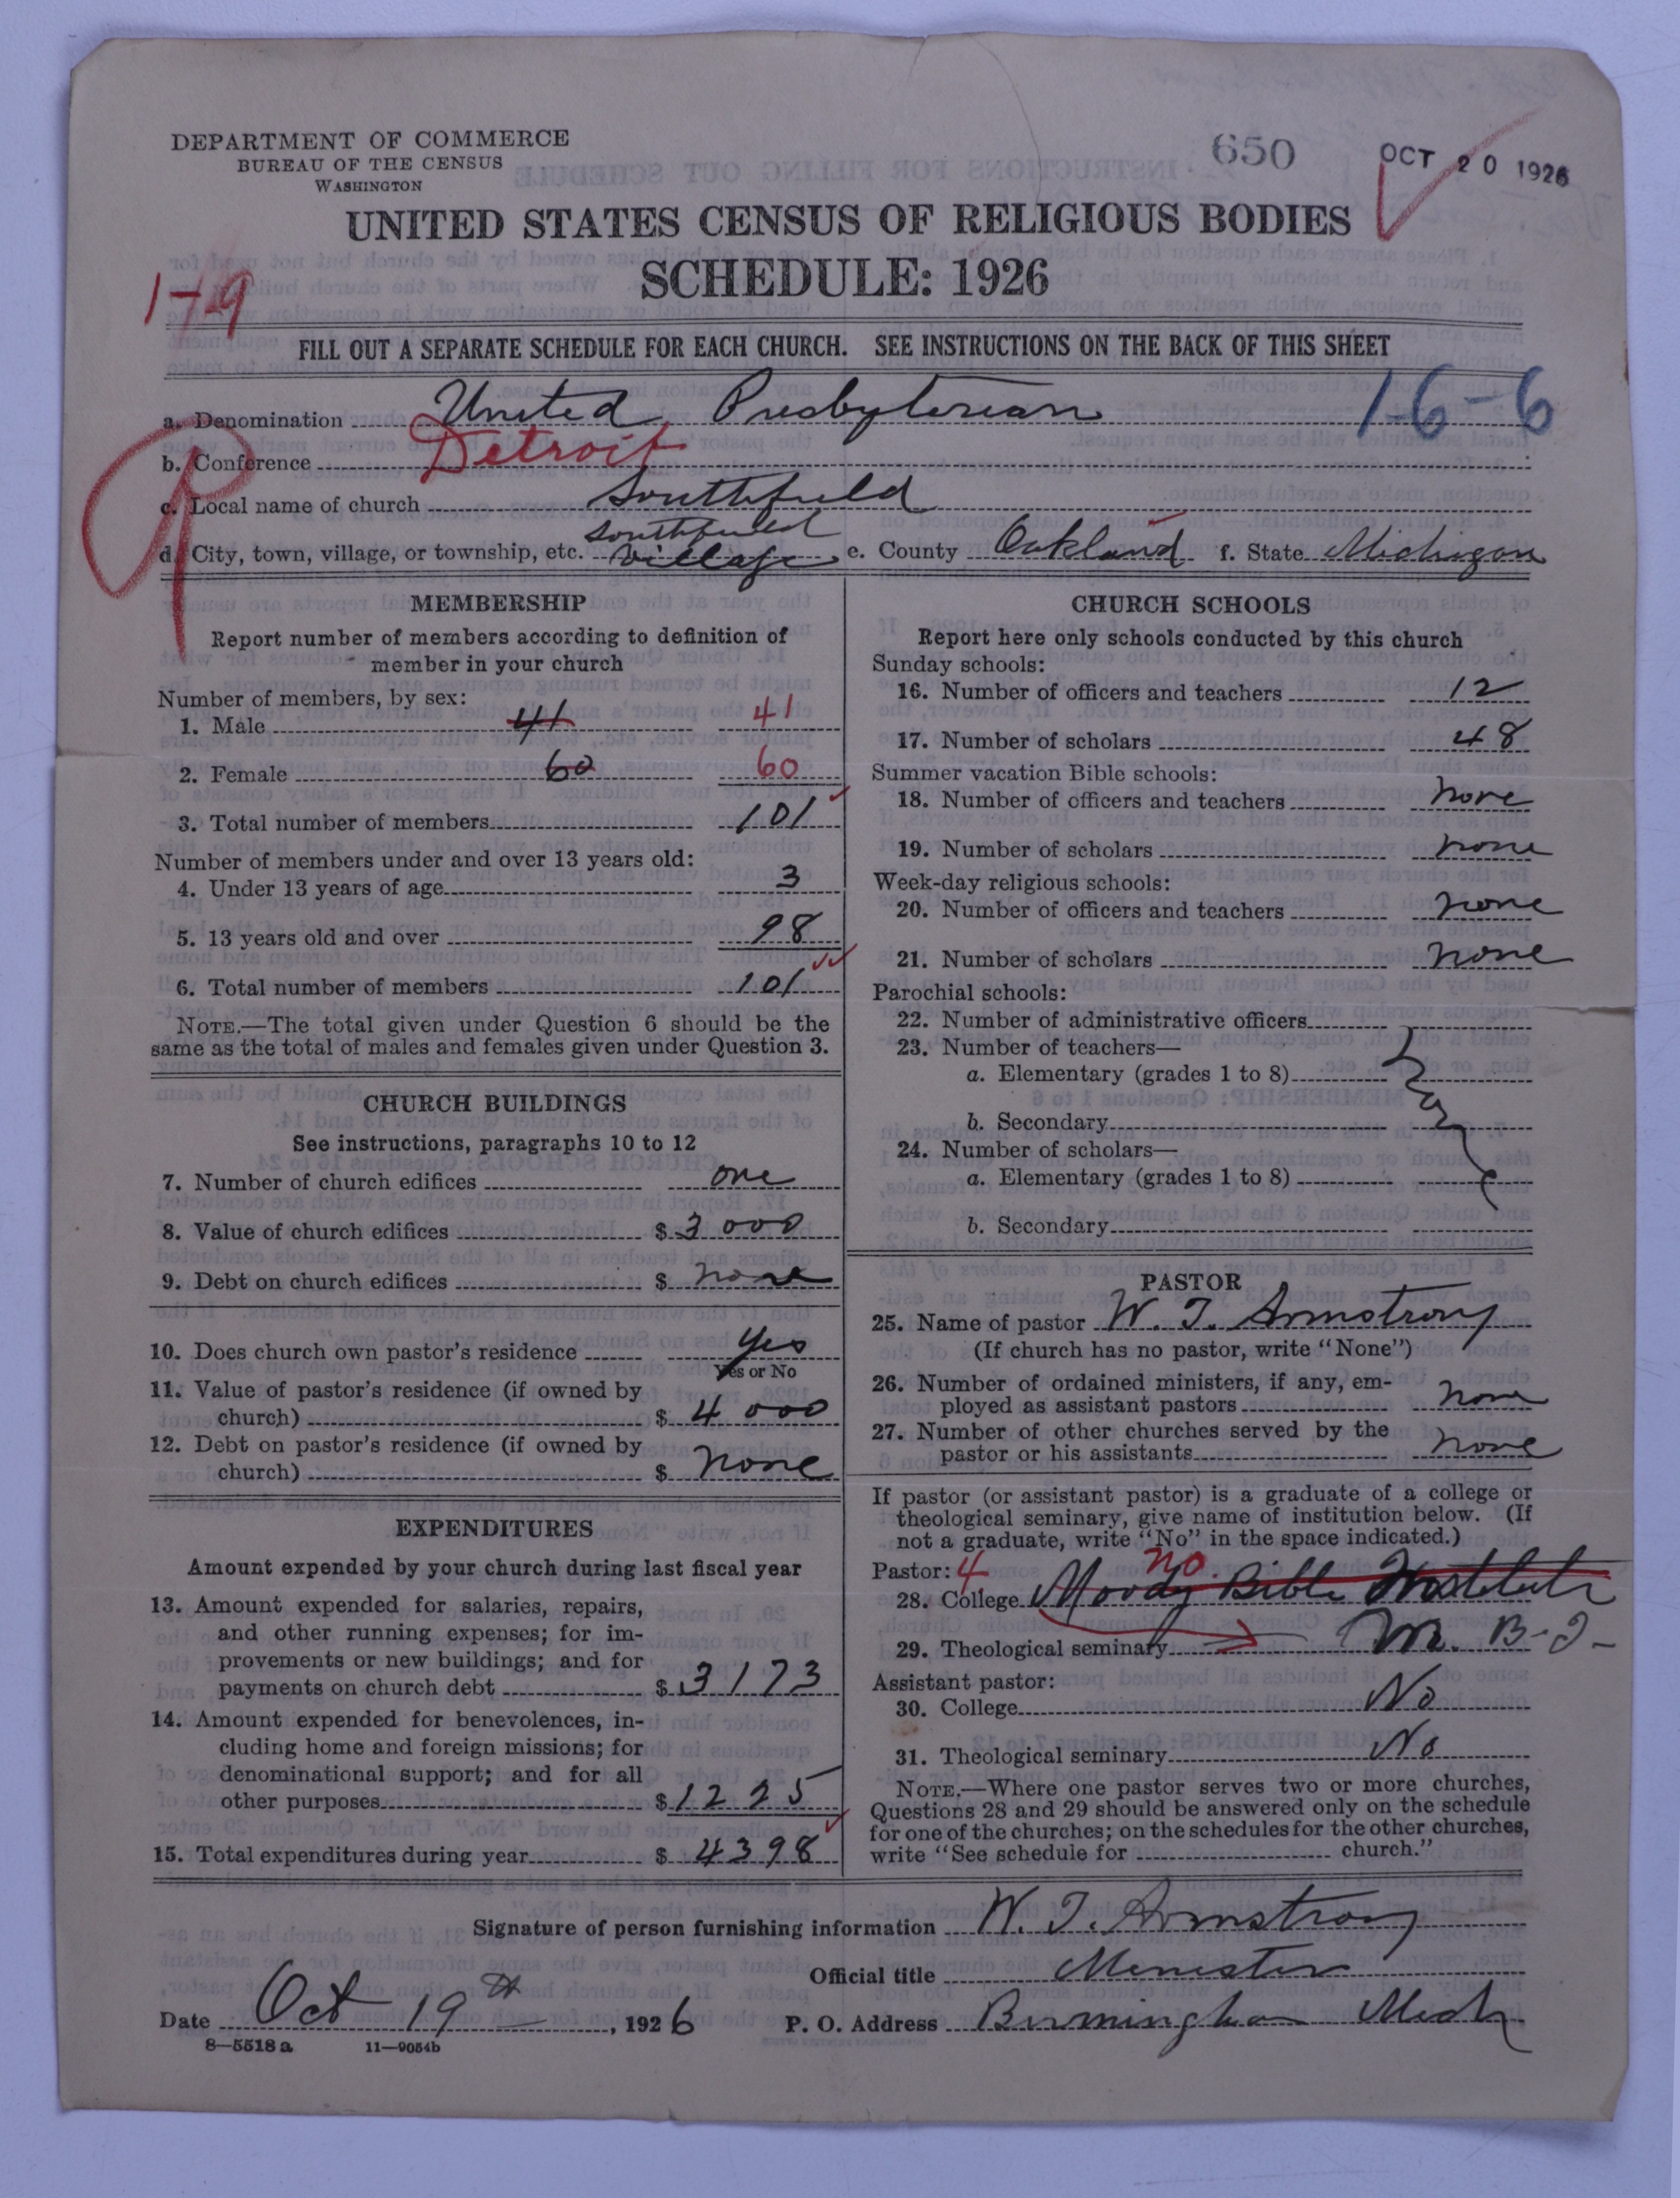 DEPARTMENT OF COMMERCE
BUREAU OF THE CENSUS
WASHINGTON
650
OCT 20 1926
UNITED STATES CENSUS OF RELIGIOUS BODIES
SCHEDULE: 1926
1-79
FILL OUT A SEPARATE SCHEDULE FOR EACH CHURCH. SEE INSTRUCTIONS ON THE BACK OF THIS SHEET
a. Denomination United Presbyterian 1-6-6
b. Conference Detroit
c. Local name of church Southfield
d. City, town, village, or township, etc. Southfield village e. County Oakland f. State Michigan
MEMBERSHIP
Report number of members according to definition of
member in your church
Number of members, by sex:
1. Male 41 41
2. Female 60 60
3. Total number of members 101
Number of members under and over 13 years old:
4. Under 13 years of age 3
5. 13 years old and over 98
6. Total number of members 101
NOTE.—The total given under Question 6 should be the
same as the total of males and females given under Question 3.
CHURCH BUILDINGS
See instructions, paragraphs 10 to 12
7. Number of church edifices one
8. Value of church edifices $ 3000
9. Debt on church edifices $ none
10. Does church own pastor's residence Yes
Yes or No
11. Value of pastor's residence (if owned by
church) $ 4000
12. Debt on pastor's residence (if owned by
church) $ none
EXPENDITURES
Amount expended by your church during last fiscal year
13. Amount expended for salaries, repairs,
and other running expenses; for im-
provements or new buildings; and for
payments on church debt $ 3173
14. Amount expended for benevolences, in-
cluding home and foreign missions; for
denominational support; and for all
other purposes $ 1225
15. Total expenditures during year $ 4398
CHURCH SCHOOLS
Report here only schools conducted by this church
Sunday schools:
16. Number of officers and teachers 12
17. Number of scholars 48
Summer vacation Bible schools:
18. Number of officers and teachers none
19. Number of scholars none
Week-day religious schools:
20. Number of officers and teachers none
21. Number of scholars none
Parochial schools:
22. Number of administrative officers
23. Number of teachers—
a. Elementary (grades 1 to 8)
none
b. Secondary
24. Number of scholars—
a. Elementary (grades 1 to 8)
b. Secondary
PASTOR
25. Name of pastor W. T. Armstrong
(If church has no pastor, write "None")
26. Number of ordained ministers, if any, em-
ployed as assistant pastors none
27. Number of other churches served by the
pastor or his assistants none
If pastor (or assistant pastor) is a graduate of a college or
theological seminary, give name of institution below. (If
not a graduate, write "No" in the space indicated.)
Pastor: 4 no
28. College Moody Bible Institute
29. Theological seminary M. B. I-
Assistant pastor:
30. College No
31. Theological seminary No
NOTE.—Where one pastor serves two or more churches,
Questions 28 and 29 should be answered only on the schedule
for one of the churches; on the schedules for the other churches,
write "See schedule for church."
Signature of person furnishing information W. T. Armstrong
Official title Minister
Date Oct 19th, 1926 P. O. Address Birmingham Mich
8—5518 a 11—9054b